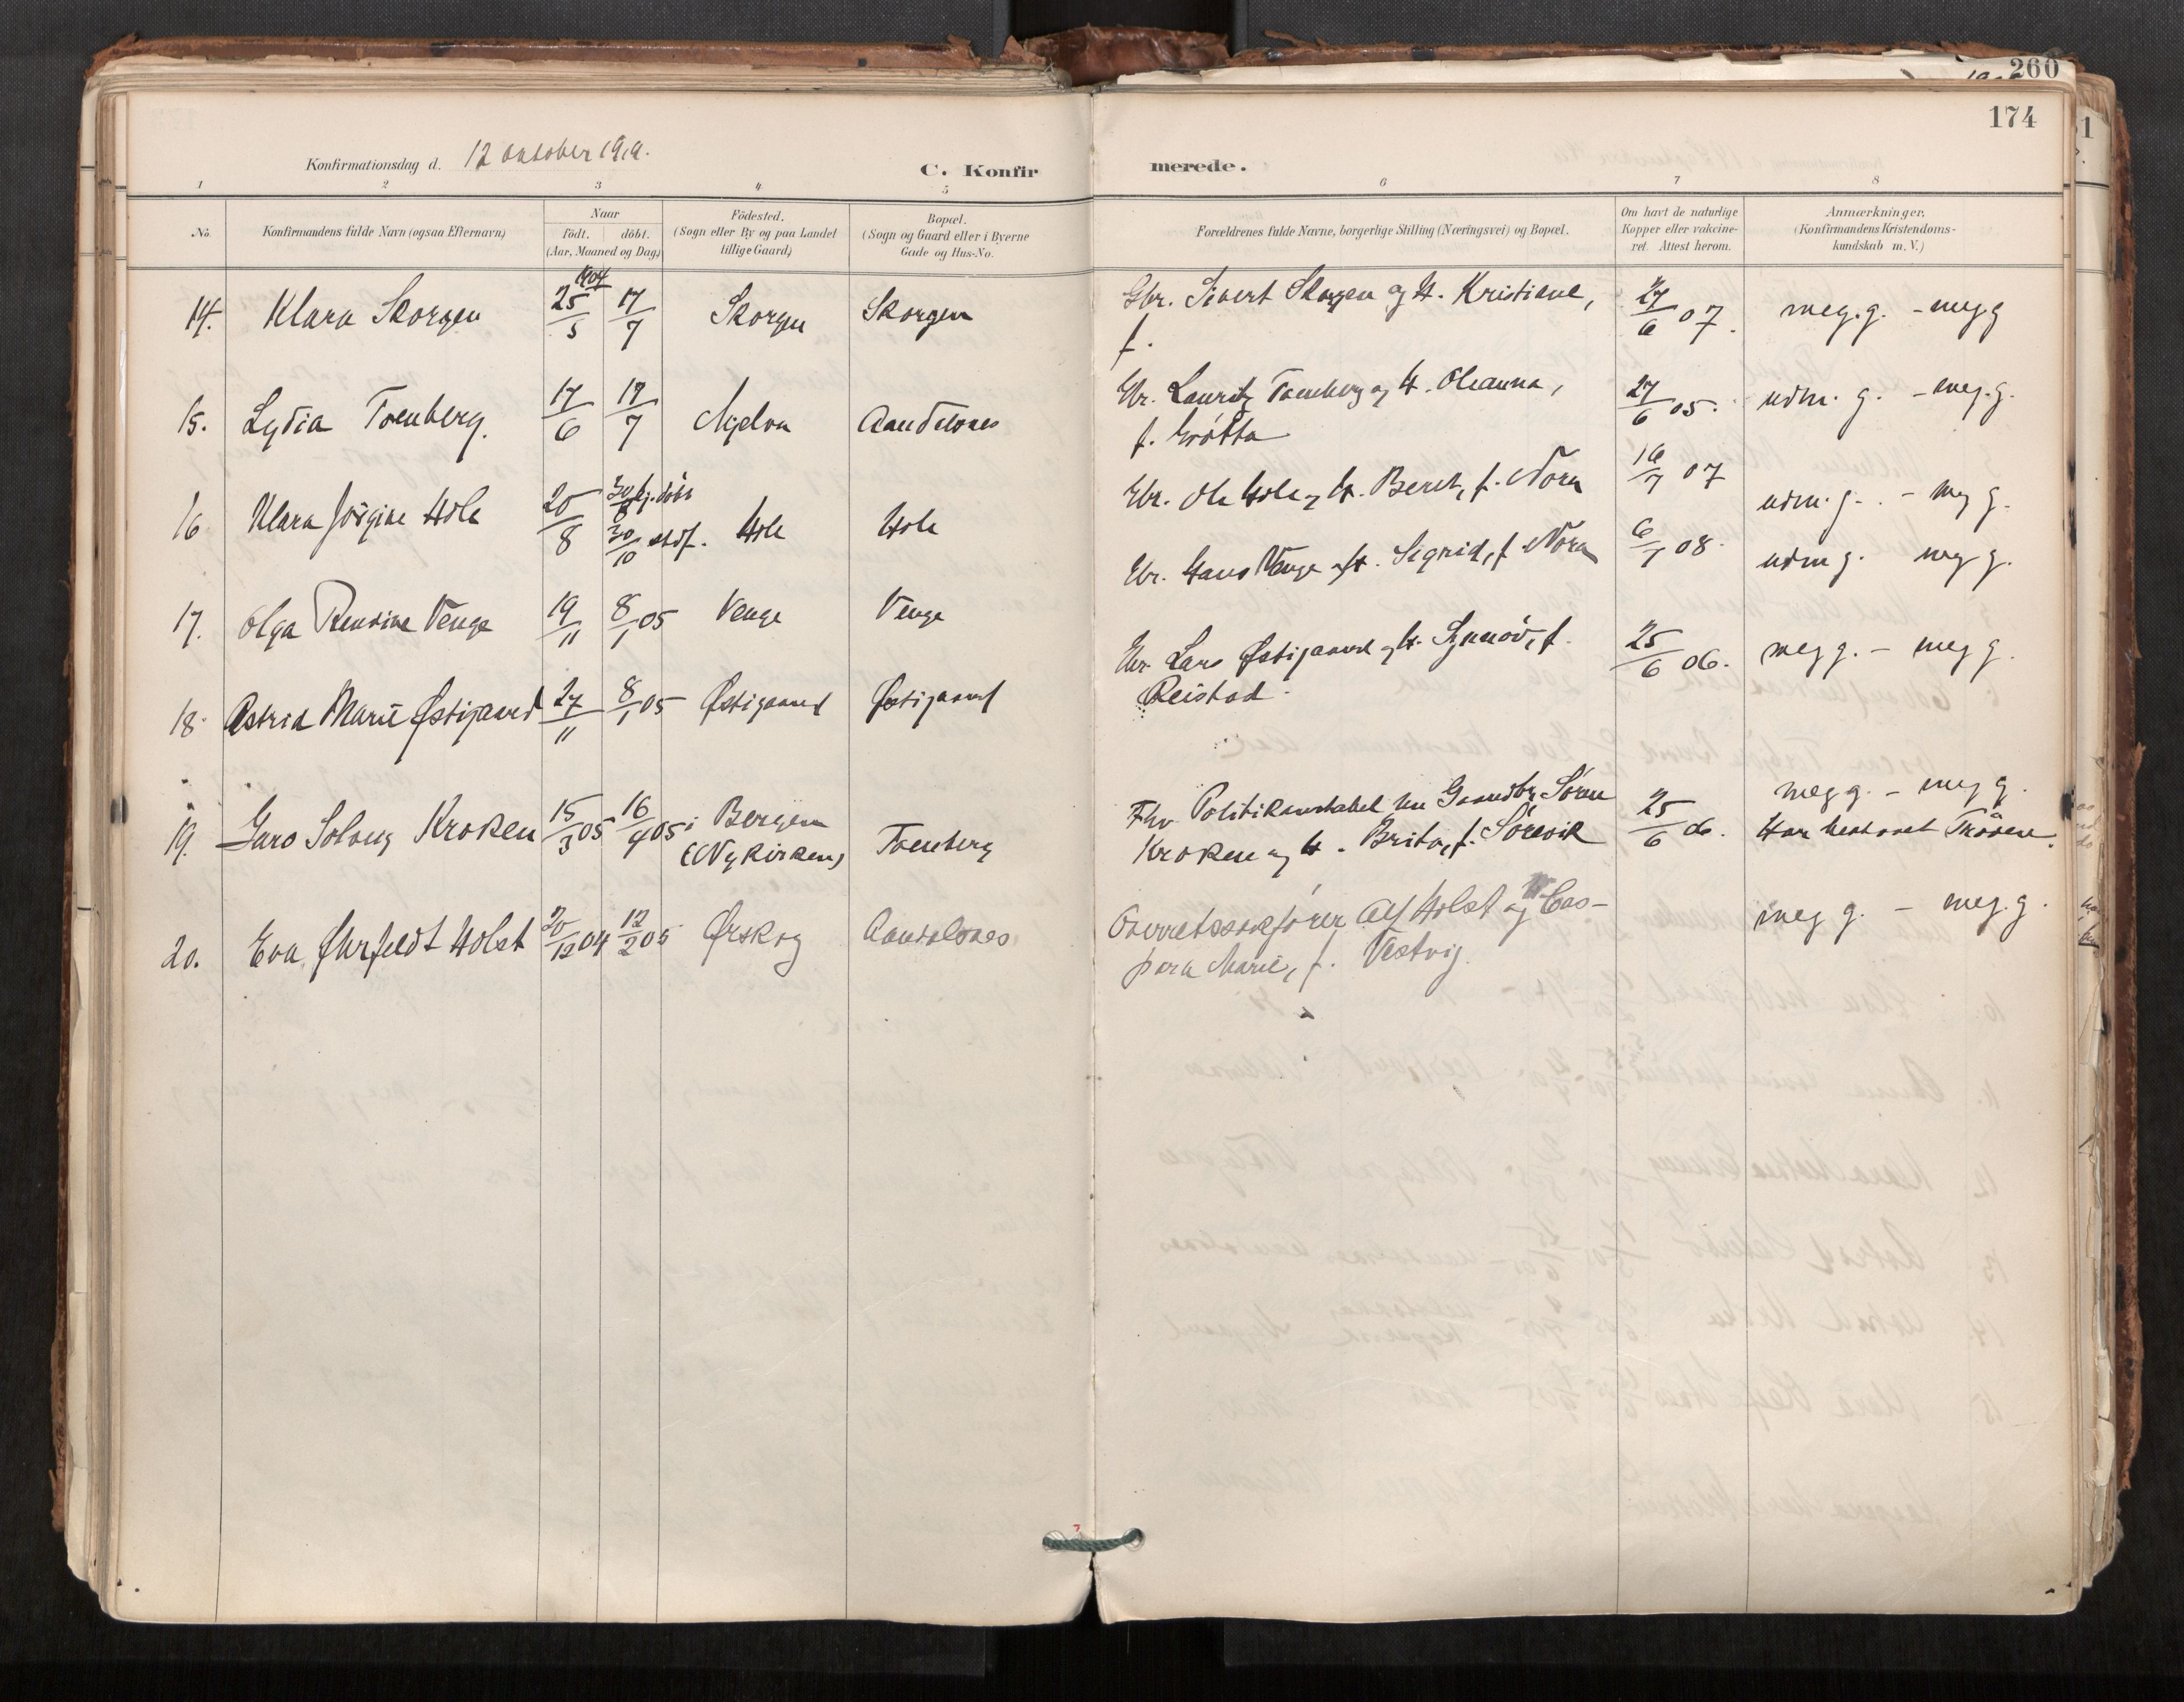 260
174
Konfirmationsdag d. 12 oktober 1919.
C. Konfirmerede.
1 2 3 4 5 6 7 8
No.
Konfirmandens fulde Navn (ogsaa Efternavn)
Naar
født. døbt.
(Aar, Maaned og Dag)
Fødested.
(Sogn eller By og paa Landet
tillige Gaard)
Bopæl.
(Sogn og Gaard eller i Byerne
Gade og Hus-No.
Forældrenes fulde Navne, borgerlige Stilling (Næringsvei) og Bopæl.
Om havt de naturlige
Kopper eller vakcine-
ret. Attest herom.
Anmærkninger.
(Konfirmandens Kristendoms-
kundskab m. V.)
14. Klara Skorgen 1904 25/5 17/7 Skorgen Skorgen Gbr. Sivert Skorgen og H. Kristiane, 27/6 07. meg. g. - meg g
f.
15. Lydia Tornberg. 17/6 17/7 Aandalsnes Gbr. Lauritz Tornberg og H. Oleanna, 27/6 05. udm. g. - meg. g.
f. Grøtta
16 Klara Jørgine Hole 20/8 30/8 hj. døbt Hole Hole Gbr. Ole Hole og H. Beret, f. Nora 16/7 07 udm. g. - meg g.
30/10 stadf.
17. Olga Venge 19/11 8/1 05 Venge Venge Gbr. Hans Venge og H. Sigrid, f. Nora 6/7 08. udm g. meg g.
18. Astrid Marie Østigaard 27/11 8/1 05 Østigaard Østigaard Gbr. Lars Østigaard og H. Synnøv, f. 25/6 06. meg g. - meg g.
Reistad.
19. Garo Solveig Kroken 15/3 05 16/4 05 i Bergen Tornberg Fhv. Politikonstabel nu Gaardbr. Søren 25/6 06. meg g. - meg g.
(Nykirken) Kroken og H. Brita, f. Sørevik Har bestaaet Prøven.
20. Eva Øhrfeldt Holst 20/12 04 12/2 05 Ørskog Aandalsnes Overretssakfører Alf Holst og H. Cas- meg g. - meg. g.
para Marie, f. Vestvig.